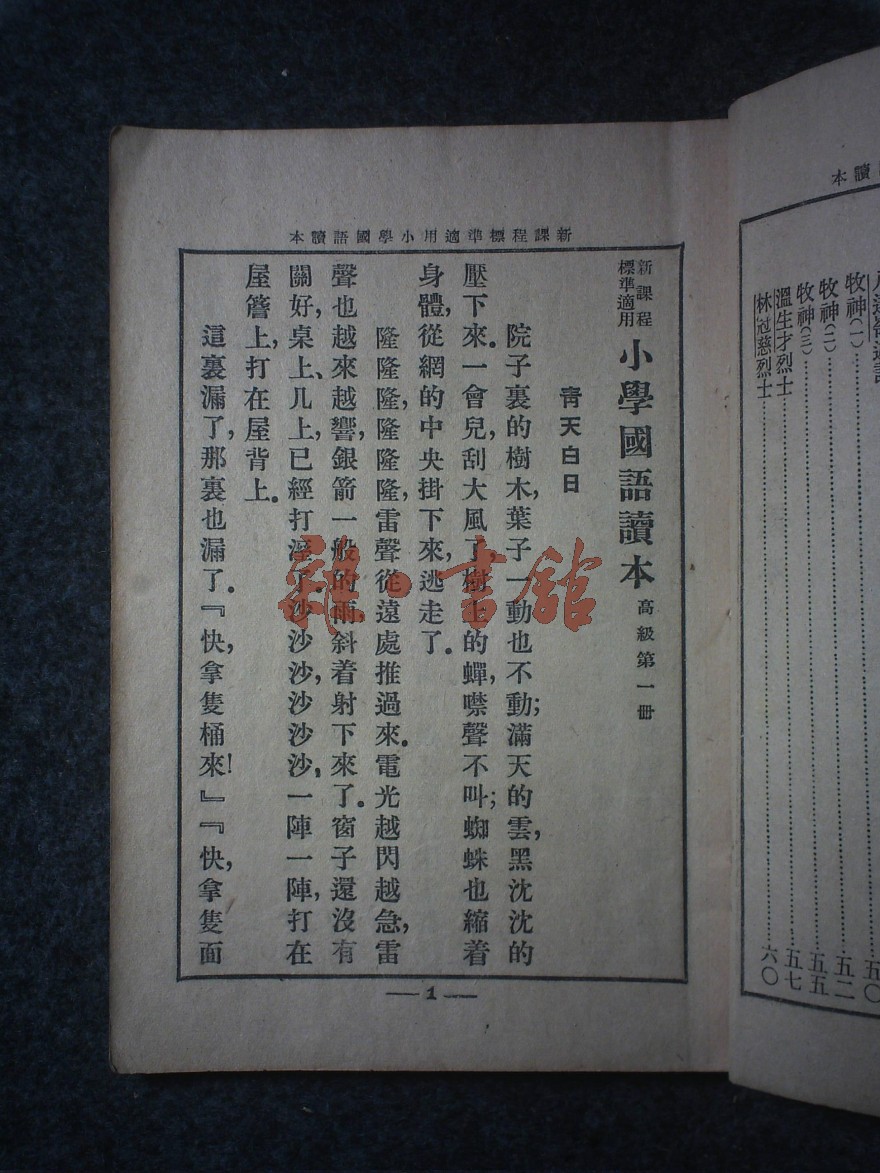 新課程標準適用小學國語讀本
新課程標準適用 小學國語讀本 高級第一冊
青天白日
院子裏的樹木，葉子一動也不動；滿天的雲，黑沈沈的
壓下來。一會兒，刮大風了，樹上的蟬，噤聲不叫；蜘蛛也縮着
身體，從網的中央掛下來，逃走了。
隆隆隆，隆隆隆，雷聲從遠處推過來。電光越閃越急，雷
聲也越來越響，銀箭一般的雨，斜着射下來了。窗子還沒有
關好，桌上、几上，已經打溼了。沙沙沙，沙沙沙，一陣一陣，打在
屋簷上，打在屋背上。
這裏漏了，那裏也漏了。『快，拿隻桶來！』『快，拿隻面
1
讀本
牧神(一)
五二
牧神(二)
五五
牧神(三)
溫生才烈士
五七
林冠慈烈士
六〇
雜·書館